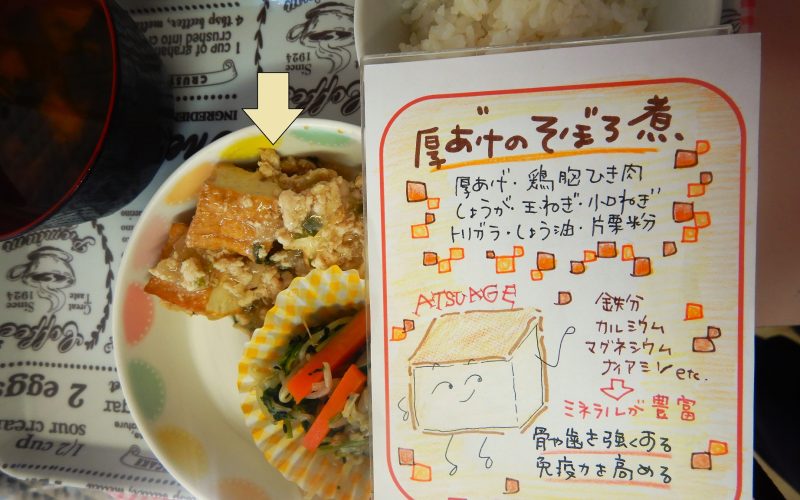 厚あげのそぼろ煮
厚あげ・鶏胸ひき肉
しょうが・玉ねぎ・小口ねぎ
トリガラ・しょう油・片栗粉
ATSUAGE
鉄分
カルシウム
マグネシウム
ナイアシン etc.
ミネラルが豊富
骨や歯を強くする
免疫力を高める
1 cup of graham
crushed into c
4 tbsp butter, melted
CRUST
Coffee
Since
1924
INGREDIE
Since
1924
Great
Taste
Coffee
2 eggs
sour cream
1/2 cup
Since 1924
Coffee